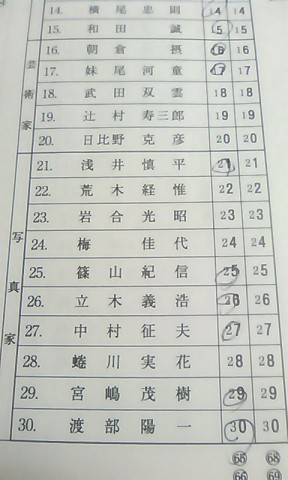 14. 横尾忠則 14 14
15. 和田誠 15 15
16. 朝倉摂 16 16
17. 妹尾河童 17 17
18. 武田双雲 18 18
19. 辻村寿三郎 19 19
20. 日比野克彦 20 20
芸術家
21. 浅井慎平 21 21
22. 荒木経惟 22 22
23. 岩合光昭 23 23
24. 梅佳代 24 24
25. 篠山紀信 25 25
26. 立木義浩 26 26
27. 中村征夫 27 27
28. 蜷川実花 28 28
29. 宮嶋茂樹 29 29
30. 渡部陽一 30 30
写真家
68 68
66 69